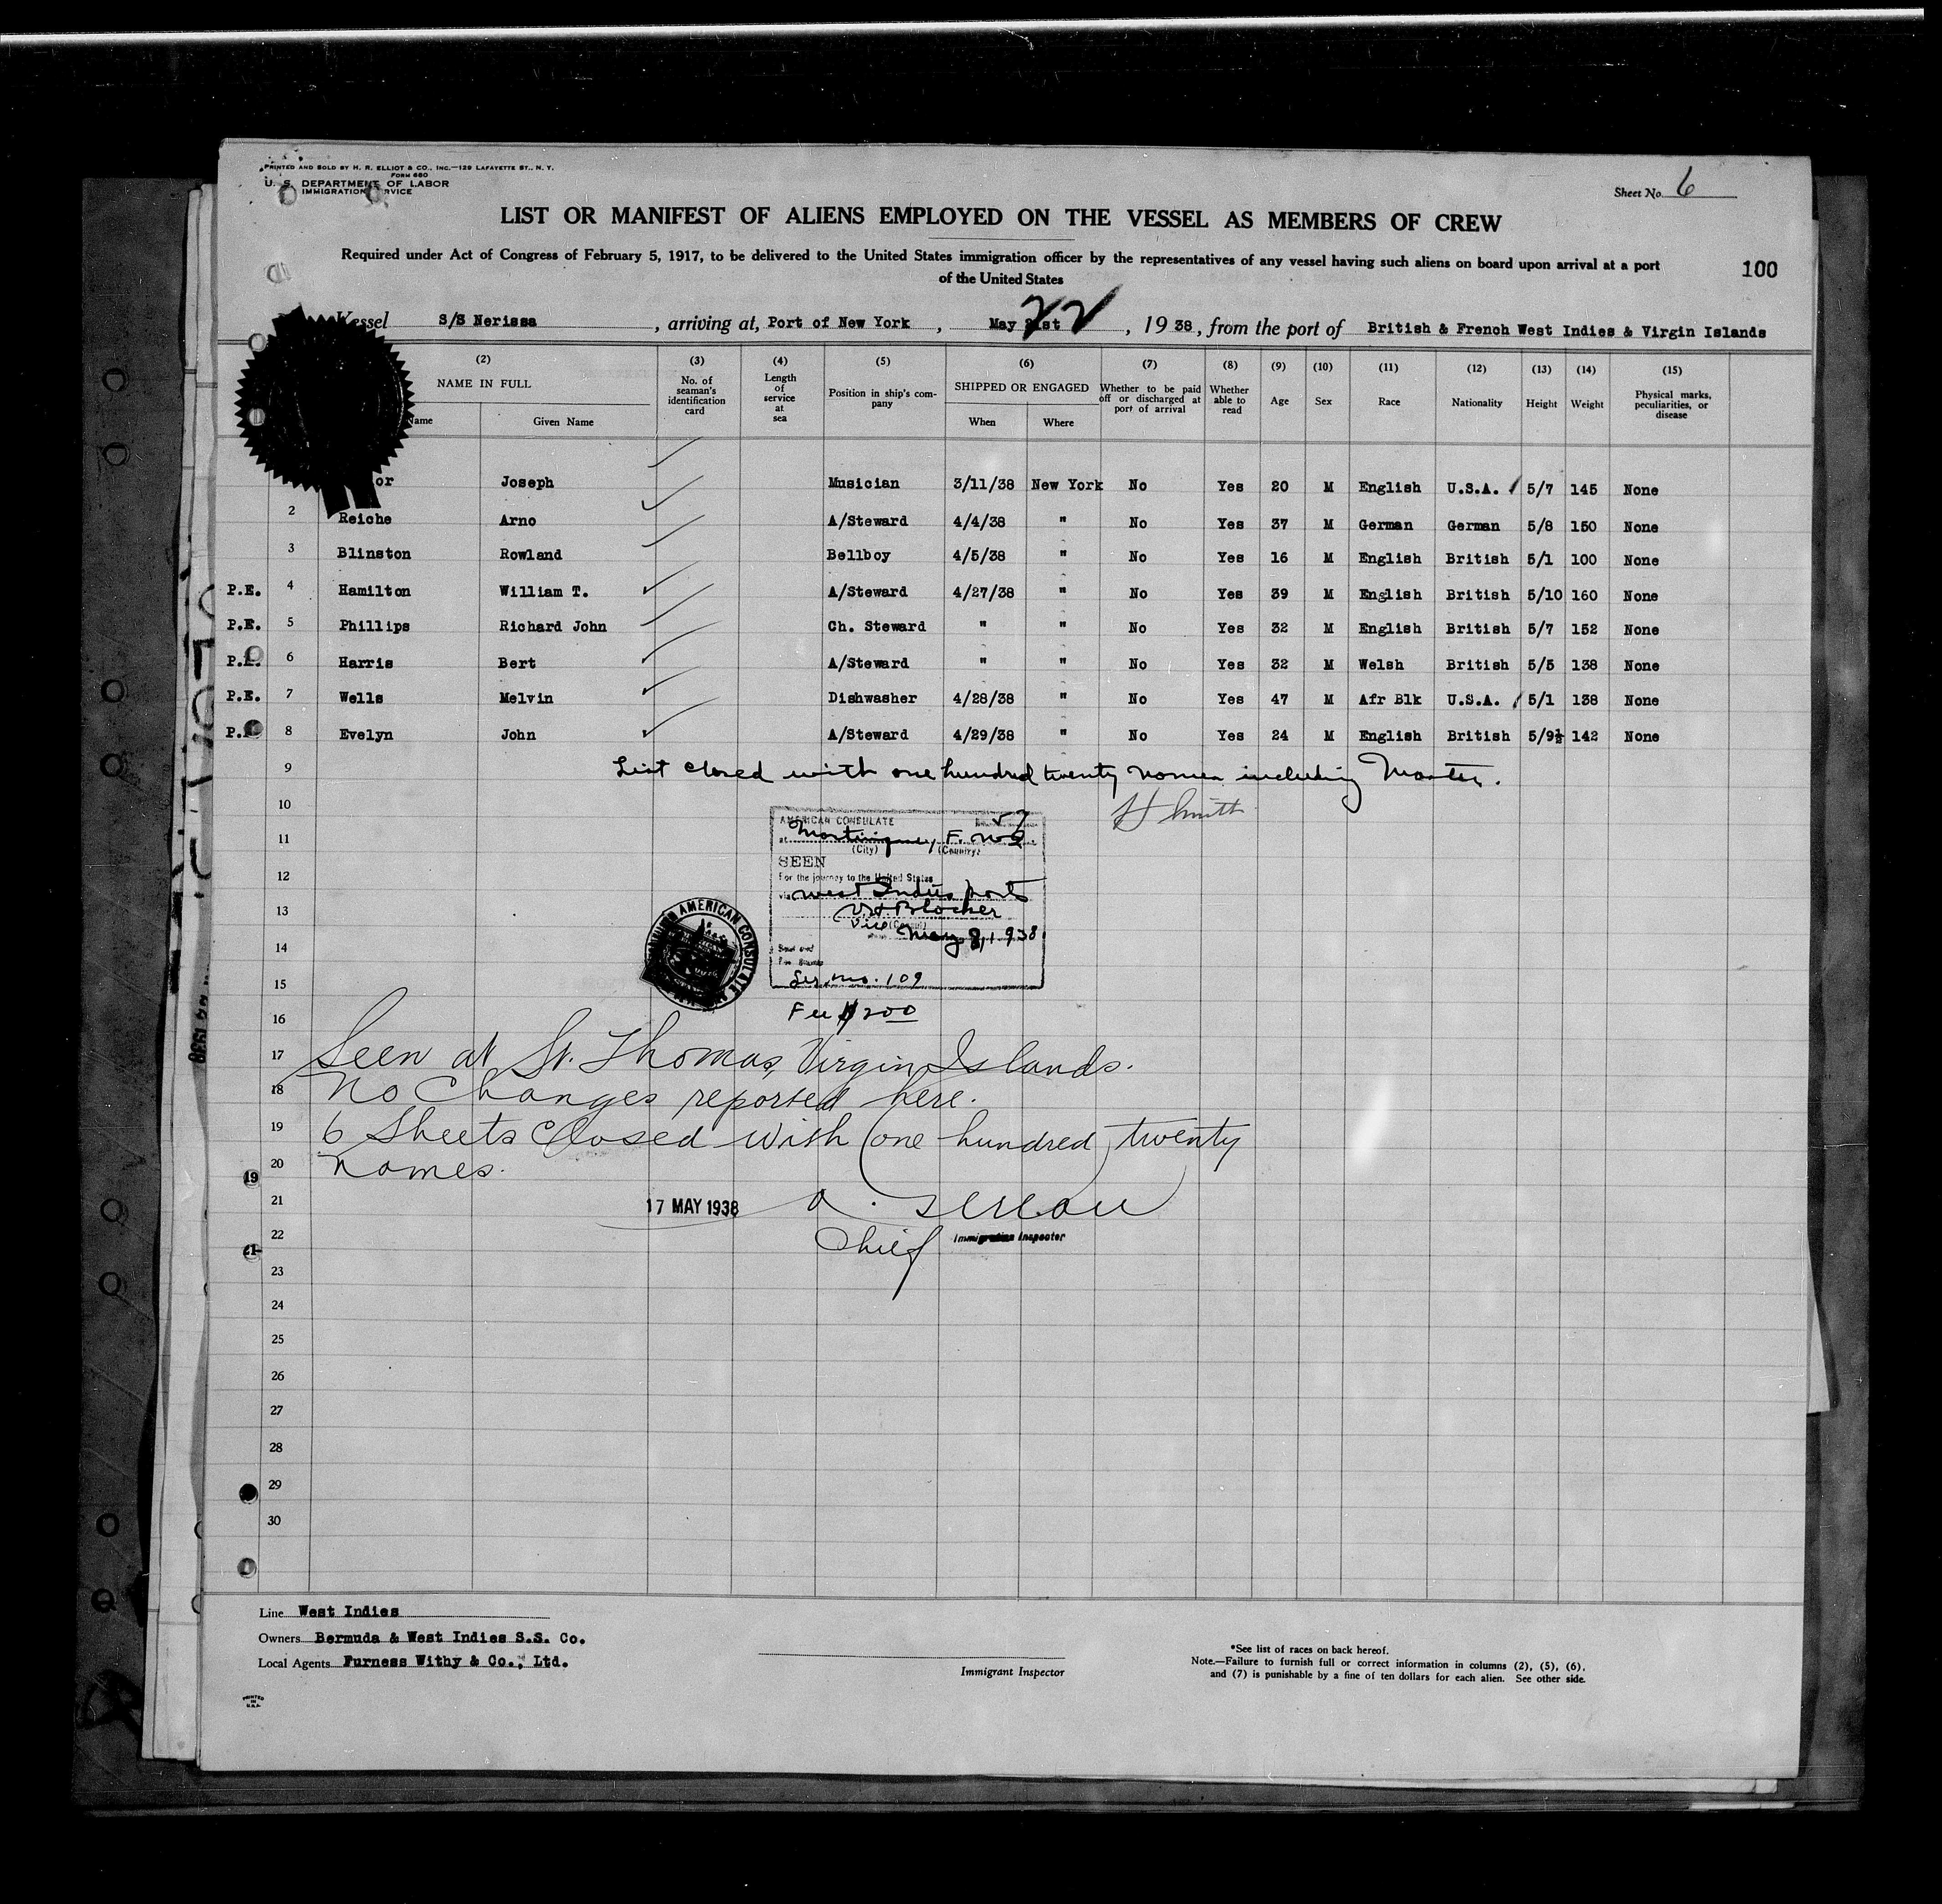 PRINTED AND SOLD BY H. R. ELLIOT & CO., INC.—129 LAFAYETTE ST., N. Y.
FORM 680
U. S. DEPARTMENT OF LABOR
IMMIGRATION SERVICE
Sheet No. 6
LIST OR MANIFEST OF ALIENS EMPLOYED ON THE VESSEL AS MEMBERS OF CREW
Required under Act of Congress of February 5, 1917, to be delivered to the United States immigration officer by the representatives of any vessel having such aliens on board upon arrival at a port
of the United States
100
Vessel S/S Nerissa, arriving at, Port of New York, May 22, 1938, from the port of British & French West Indies & Virgin Islands
(2) (3) (4) (5) (6) (7) (8) (9) (10) (11) (12) (13) (14) (15)
NAME IN FULL No. of seaman's identification card Length of service at sea Position in ship's company SHIPPED OR ENGAGED Whether to be paid off or discharged at port of arrival Whether able to read Age Sex Race Nationality Height Weight Physical marks, peculiarities, or disease
Name Given Name When Where
or Joseph Musician 3/11/38 New York No Yes 20 M English U.S.A. 5/7 145 None
2 Reiche Arno A/Steward 4/4/38 " No Yes 37 M German German 5/8 150 None
3 Blinston Rowland Bellboy 4/5/38 " No Yes 16 M English British 5/1 100 None
P.E. 4 Hamilton William T. A/Steward 4/27/38 " No Yes 39 M English British 5/10 160 None
P.E. 5 Phillips Richard John Ch. Steward " " No Yes 32 M English British 5/7 152 None
P.E. 6 Harris Bert A/Steward " " No Yes 32 M Welsh British 5/5 138 None
P.E. 7 Wells Melvin Dishwasher 4/28/38 " No Yes 47 M Afr Blk U.S.A. 5/1 138 None
P. 8 Evelyn John A/Steward 4/29/38 " No Yes 24 M English British 5/9½ 142 None
9 List closed with one hundred twenty names including Master.
10
Smith
AMERICAN CONSULATE
at Martinique, F.W.I.
(City) (Country)
11
SEEN
12 For the journey to the United States
via West Indies ports
13 Blocher
Vice
May 8, 1938
14
15 Ser. no. 109
AMERICAN CONSULATE
16 Fee $2.00
17 Seen at St. Thomas, Virgin Islands.
18 No Changes reported here.
19 6 Sheets Closed with (one hundred) twenty
20 names.
19
21 17 MAY 1938
22 Chief Immigration Inspector
21
23
24
25
26
27
28
29
30
Line West Indies
Owners Bermuda & West Indies S.S. Co.
Local Agents Furness Withy & Co., Ltd.
Immigrant Inspector
*See list of races on back hereof.
Note.—Failure to furnish full or correct information in columns (2), (5), (6),
and (7) is punishable by a fine of ten dollars for each alien. See other side.
PRINTED
IN
U.S.A.